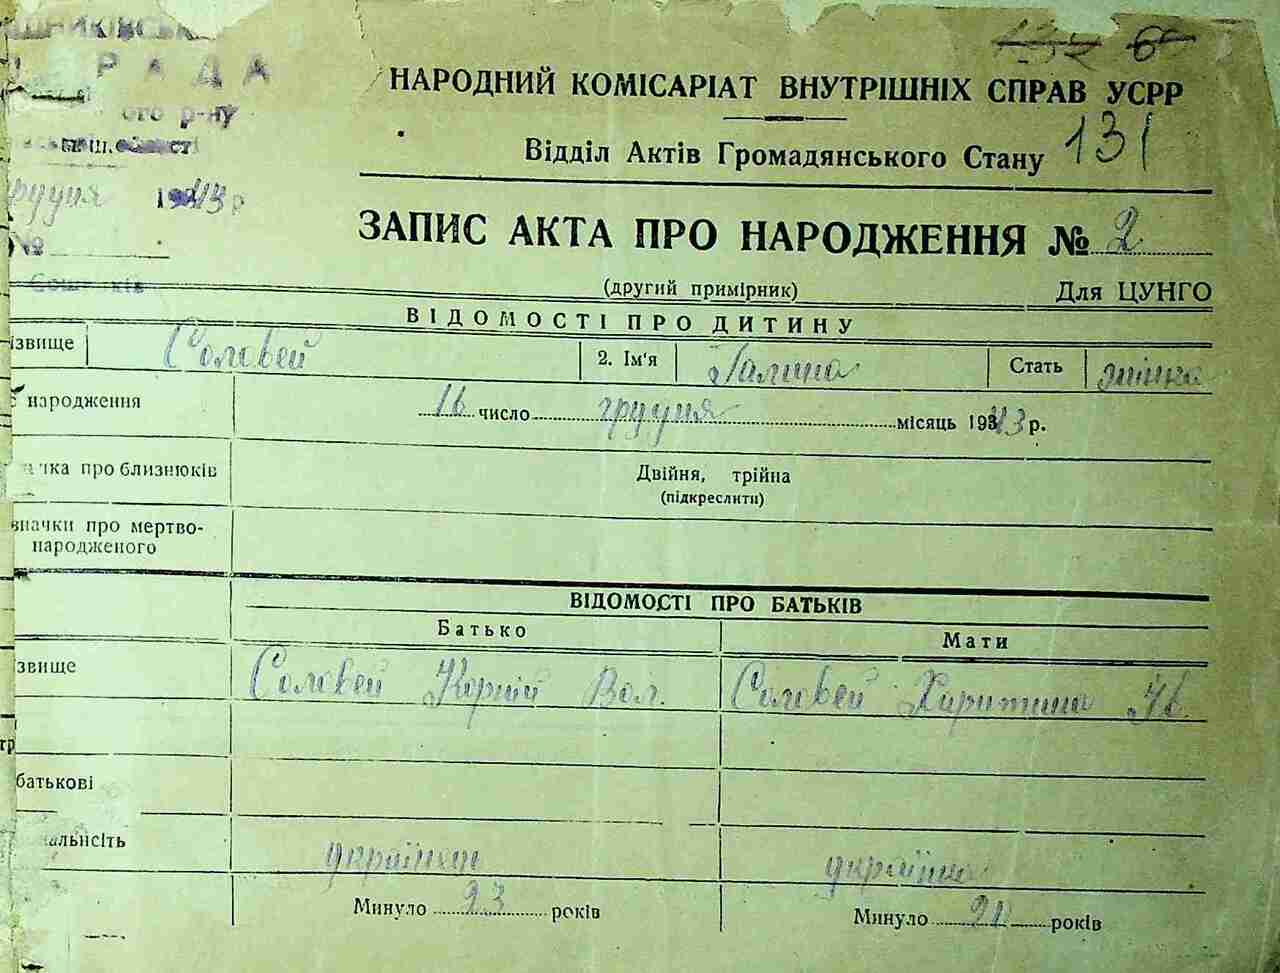 РАДА
ого р-ну
НАРОДНИЙ КОМІСАРІАТ ВНУТРІШНІХ СПРАВ УСРР
Відділ Актів Громадянського Стану 131
грудня 1943 р
№
ЗАПИС АКТА ПРО НАРОДЖЕННЯ № 2
(другий примірник) Для ЦУНГО
ВІДОМОСТІ ПРО ДИТИНУ
ізвище Соловей 2. Ім'я Галина Стать жінка
народження 16 число грудня місяць 1943 р.
чка про близнюків Двійня, трійна
(підкреслити)
значки про мертво-
народженого
ВІДОМОСТІ ПРО БАТЬКІВ
Батько Мати
звище Соловей Корній Вол. Соловей Харитина Ів.
батькові
альність українец українка
Минуло 23 років Минуло років